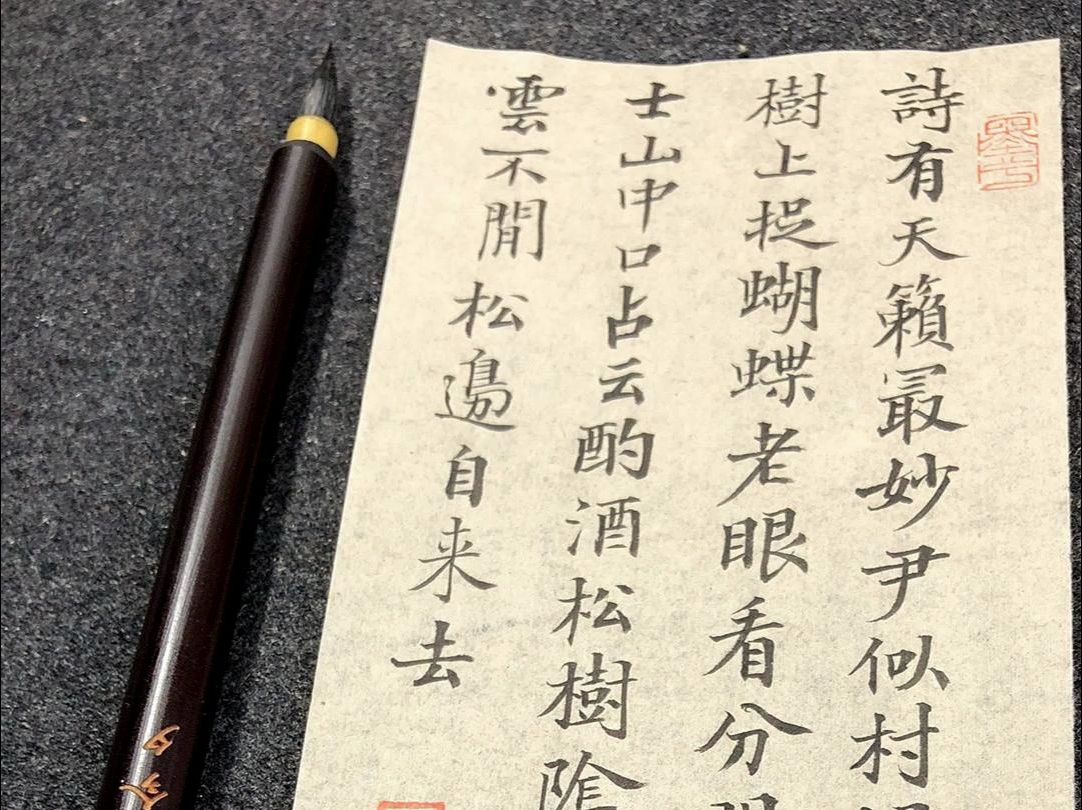 詩有天籟最妙尹似村
樹上捉蝴蝶老眼看分
士山中口占云酌酒松樹陰
雲不閒松邊自来去